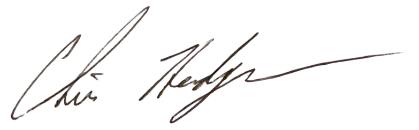 Chris Hedges